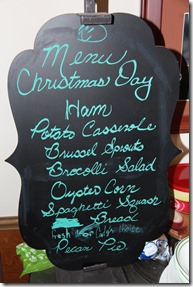 Menu
Christmas Day
Ham
Potato Casserole
Brussel Sprouts
Brocolli Salad
Oyster Corn
Spaghetti Squash
Bread
Pecan Pie